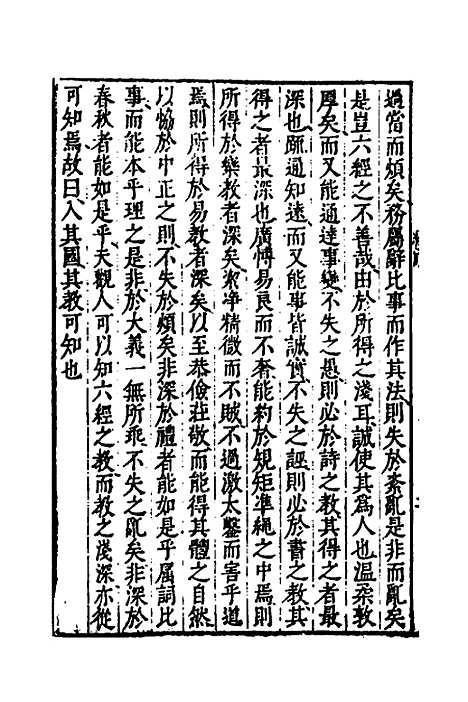 過當而煩矣務屬辭比事而作其法則失於紊亂是非而亂矣
是豈六經之不善哉由於所得之淺耳誠使其為人也溫柔敦
厚矣而又能通達事變不失之愚則必於詩之教其得之者最
深也䟽通知遠而又能事皆誠實不失之誣則必於書之教其
得之者最深也廣博易良而不奢能約於規矩準繩之中焉則
所得於樂教者深矣潔凈精微而不賊不過激太鑿而害乎道
焉則所得於易教者深矣以至恭儉莊敬而能得其體之自然
以恊於中正之則不失於煩矣非深於禮者能如是乎属詞比
事而能本乎理之是非於大義一無所乖不失之亂矣非深於
春秋者能如是乎夫觀人可以知六經之教而教之淺深亦從
可知焉故曰入其國其教可知也